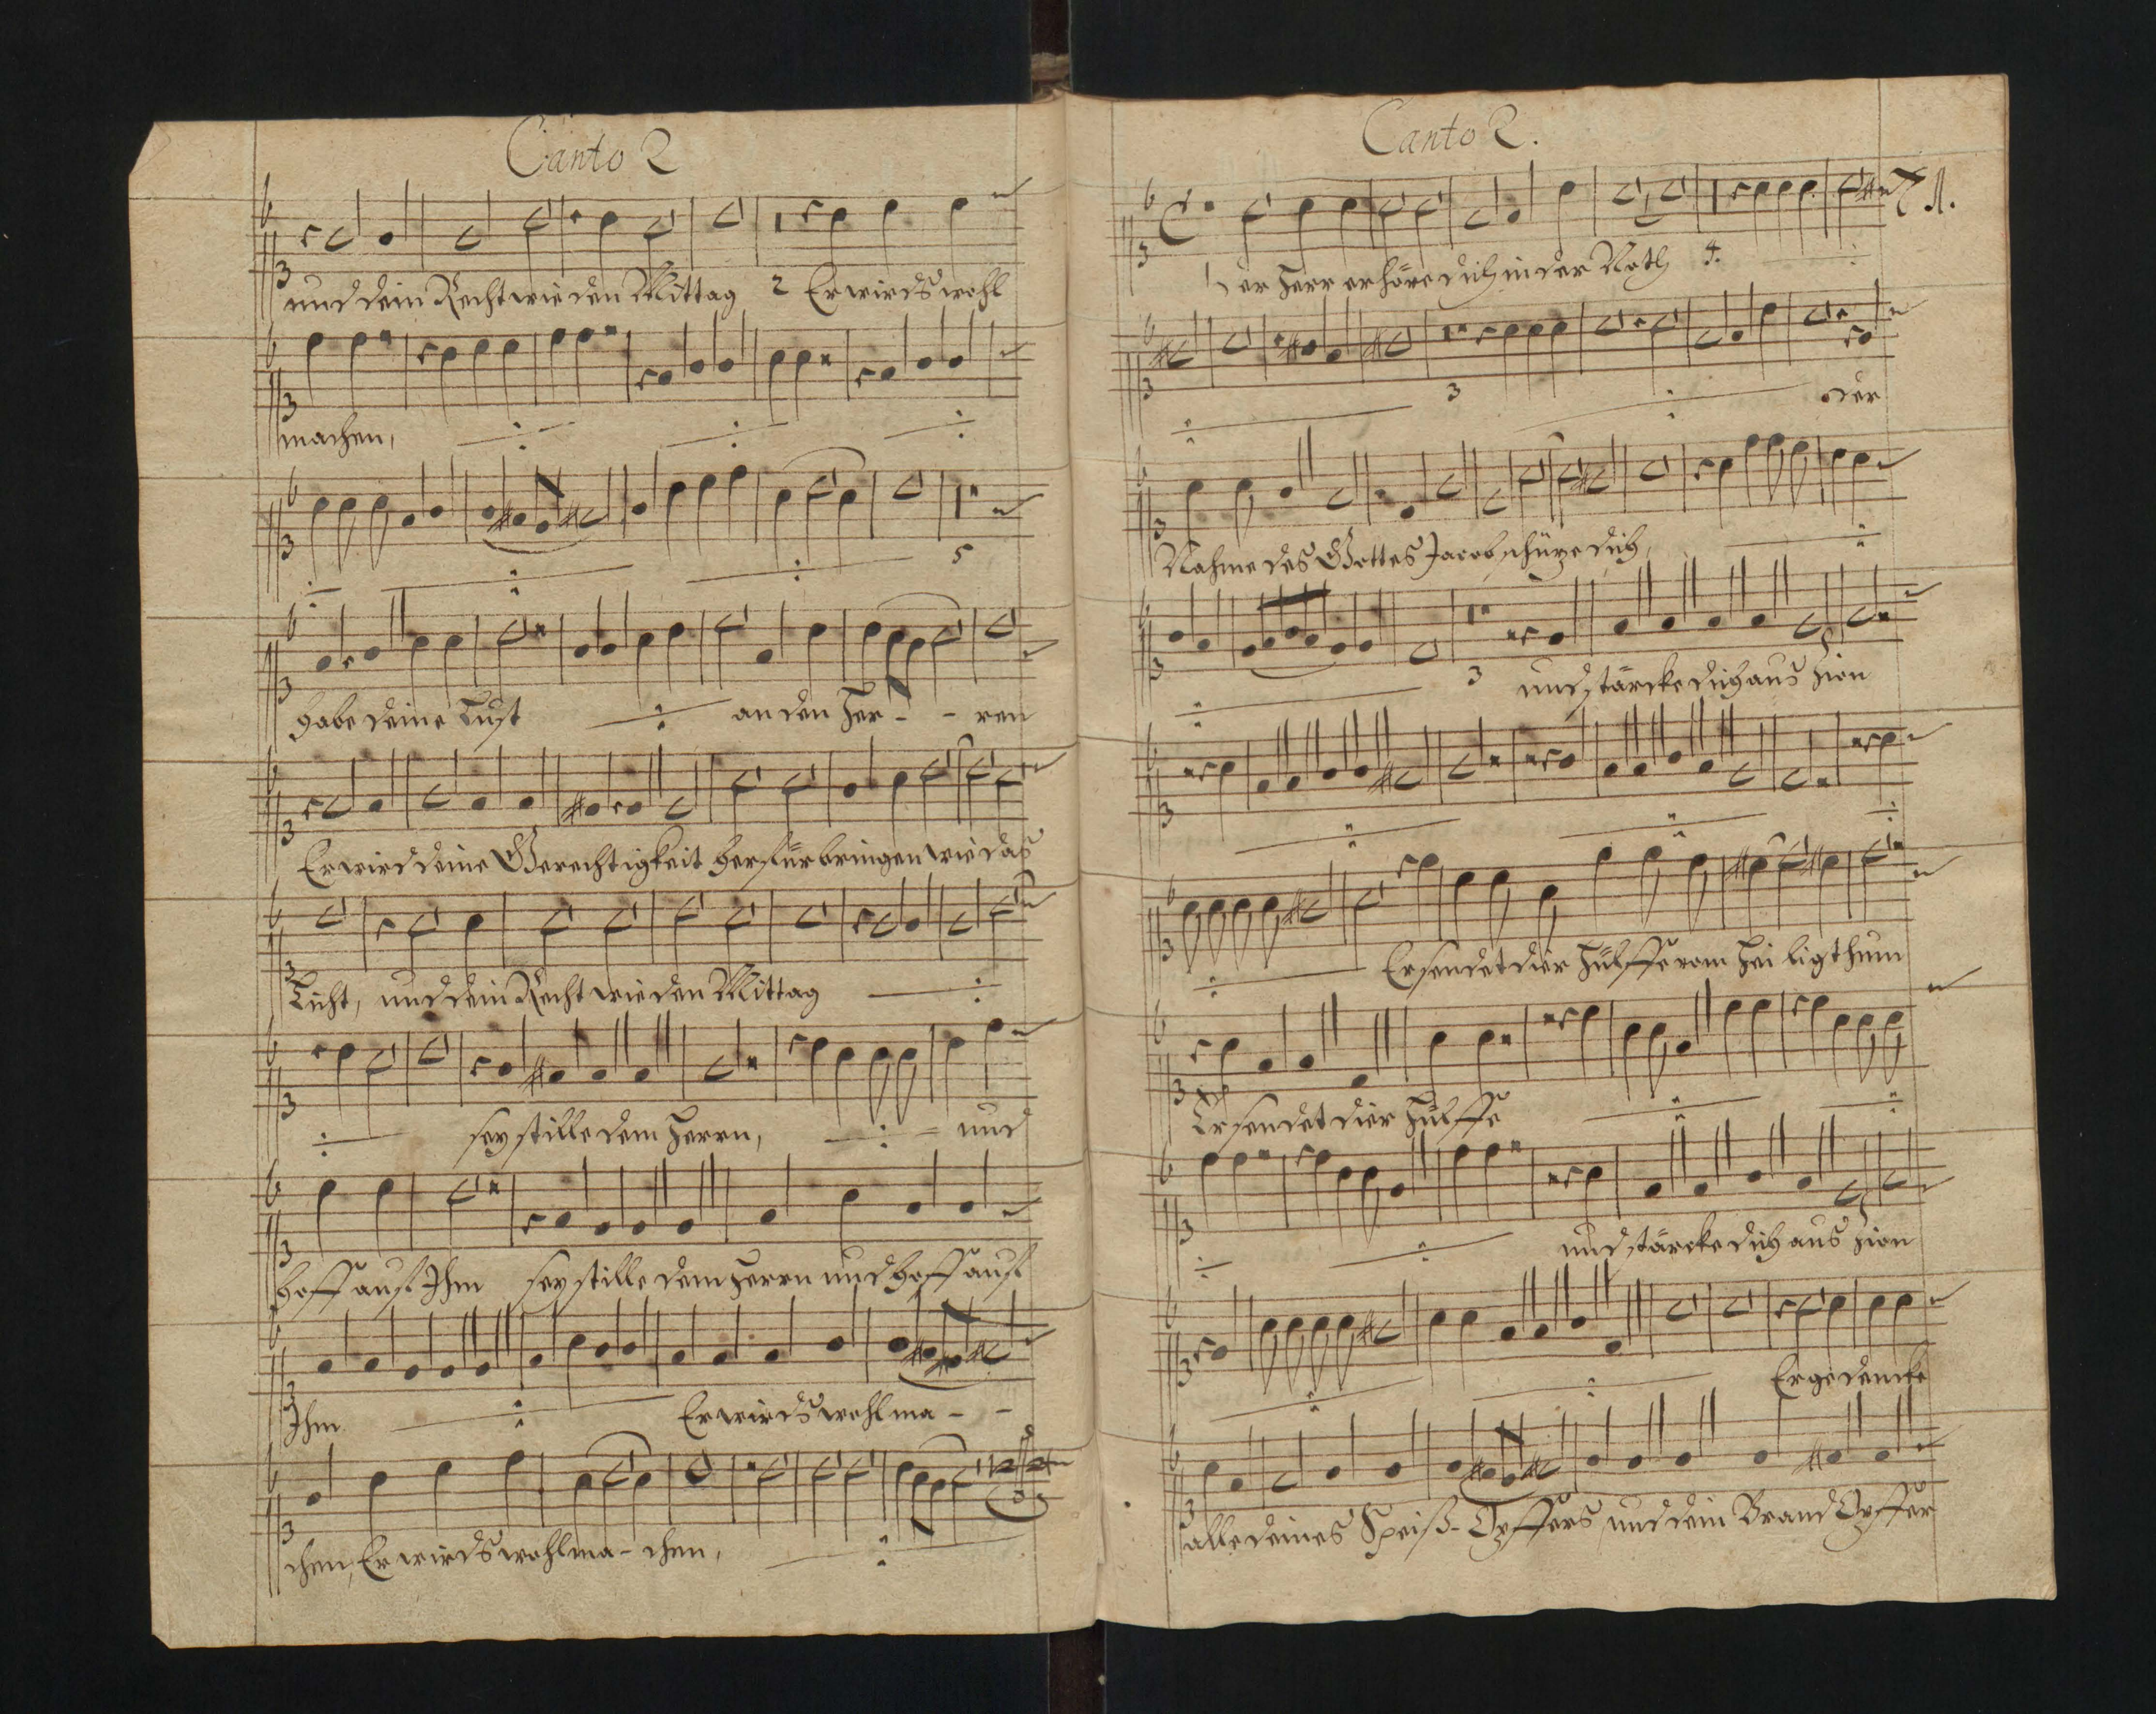 Canto 2
und dein Recht wie den Mittag 2 Er wirds wohl
machen,
5
habe deine Lust an den Her - - ren
Er wird deine Gerechtigkeit herfür bringen wie das
Licht, und dein Recht wie den Mittag
sey stille dem Herrn, und
hoff auf Ihm sey stille dem Herrn und hoff auf
Ihm Er wirds wohl ma - -
chen, Er wirds wohl ma - chen,
Canto 2.
1 Der Herr erhöre dich in der Noth 4.
3 der
Nahme des Gottes Jacob schüze dich,
3 und stärcke dich aus Zion
Er sendet dier Hülffe vom Hei ligthum
Er sendet dier Hülffe
und stärcke dich aus Zion
Er gedencke
alle deines Speiß-Opffers und dein Brand Opffer